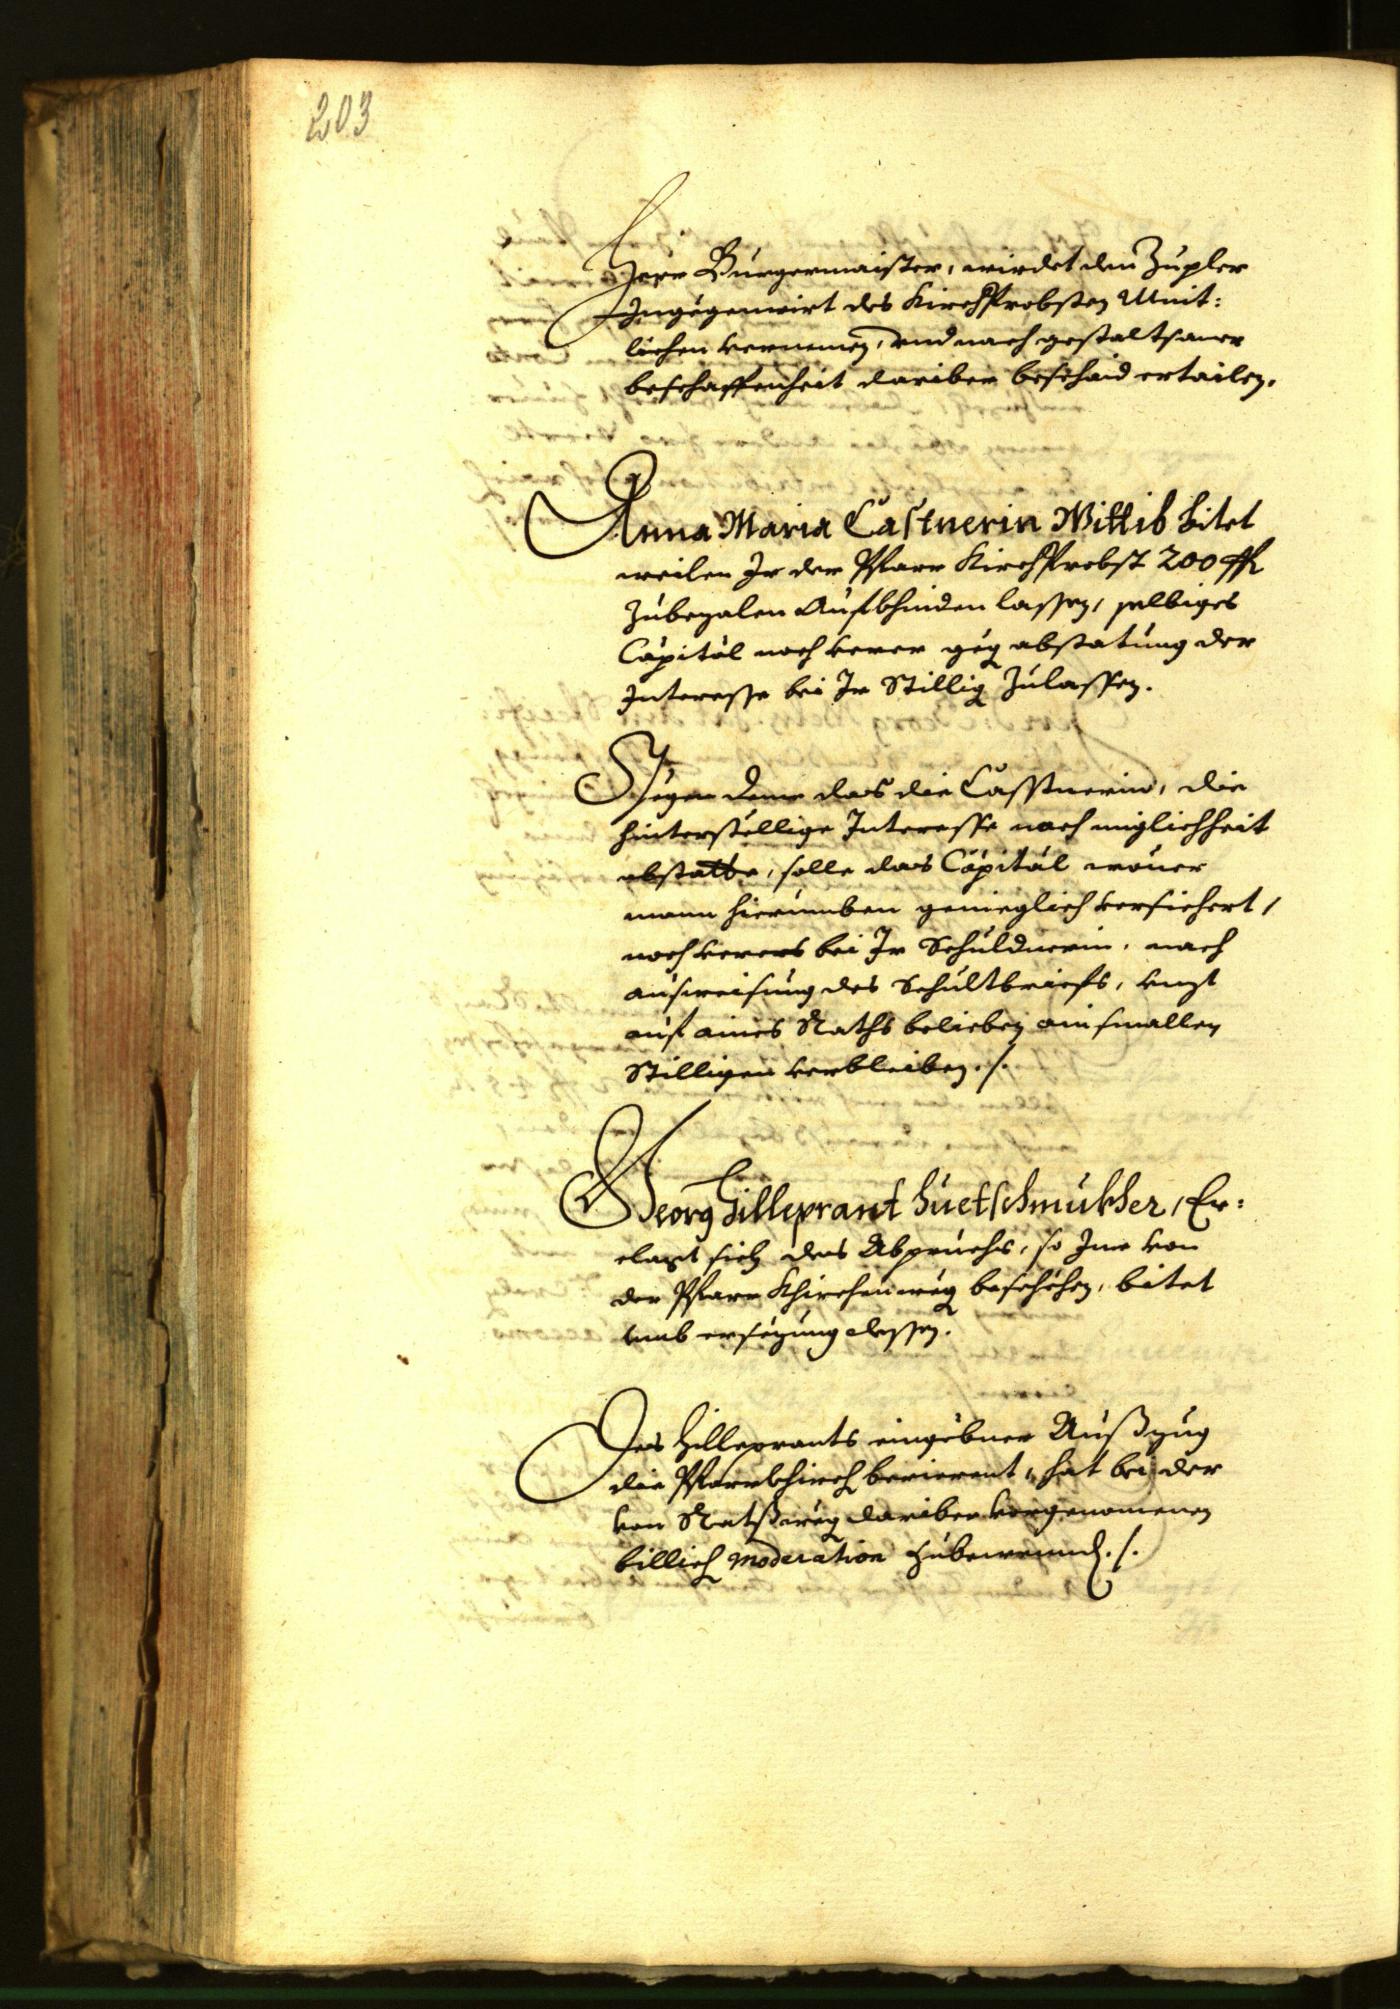 203
Herr Burgermaister, wirdet den Zupler
Ingegenwirt des KirchProbsten Muit:
lichen vernemen, und nach gestaltsamer
beschaffenheit dariber beschaid ertailen.
Anna Maria Castnerin Wittib bitet
weilen Ir der Pfarr KirchProbst 200 fl
Zubezalen Aufkhinden lassen, selbiges
Capital noch verer geg abstatung der
Interesse bei Ir Stillig Zulassen.
Gegen deme das die Casstnerin, die
hinterstellige Interesse nach miglichheit
abstatte, solle das Capital wouer
mann hierumben geniegsich versichert,
noch verers bei Ir Schuldnerin, nach
ausweisung des Schultbriefs, unzt
auf aines Raths belieben ainsmallen
Stilligen verbleiben ./.
Georg Hilleprant Huetschmukher, Er:
clagt sich des Abpruchs, so Ime von
der Pfarr Khirchen weg beschehen, bitet
umb ersezung dessen.
Des Hilleprants eingebner Außzug
die Pfarrkhirch berierent, hat bei der
von Ratßweg dariber vorgenomenen
billich moderation zubewennd ./.